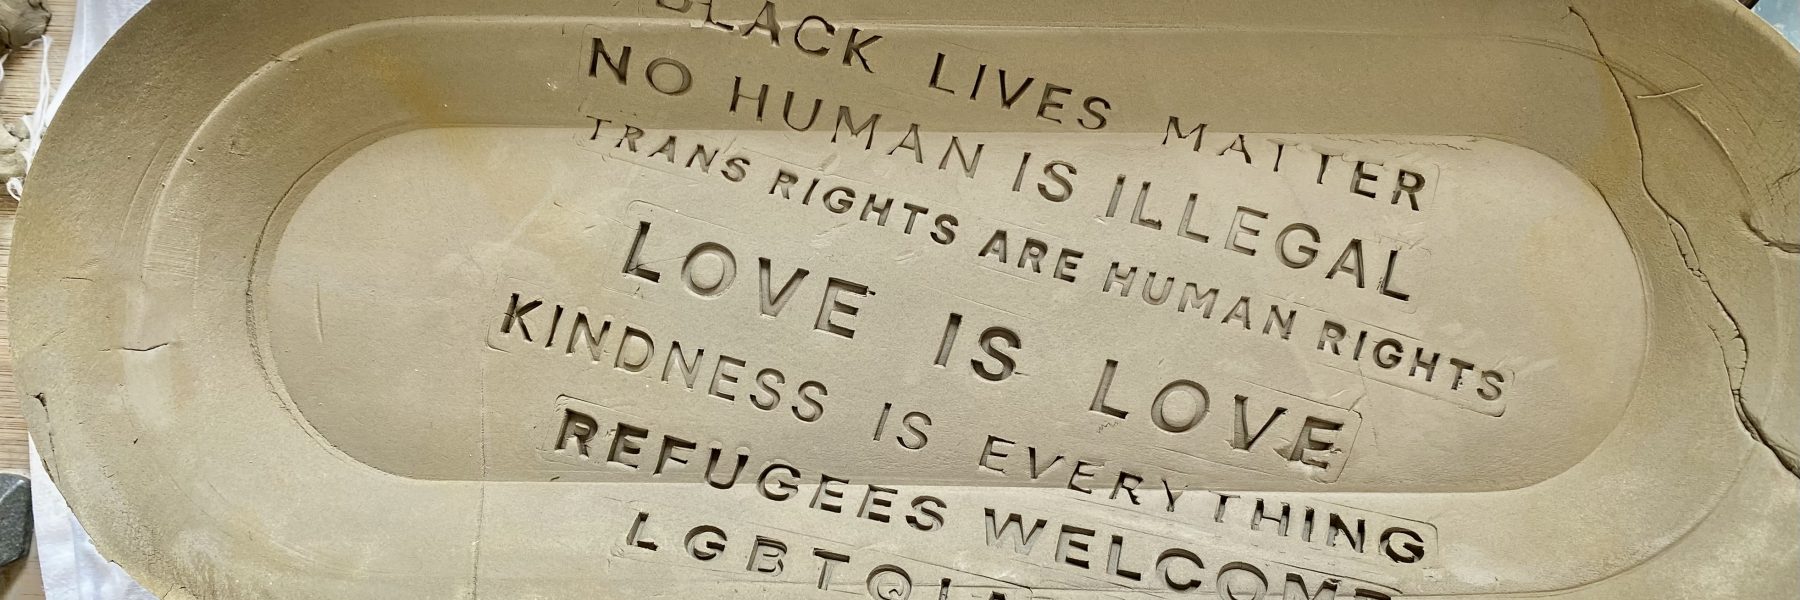 BLACK LIVES MATTER
NO HUMAN IS ILLEGAL
TRANS RIGHTS ARE HUMAN RIGHTS
LOVE IS LOVE
KINDNESS IS EVERYTHING
REFUGEES WELCOME
LGBTQIA